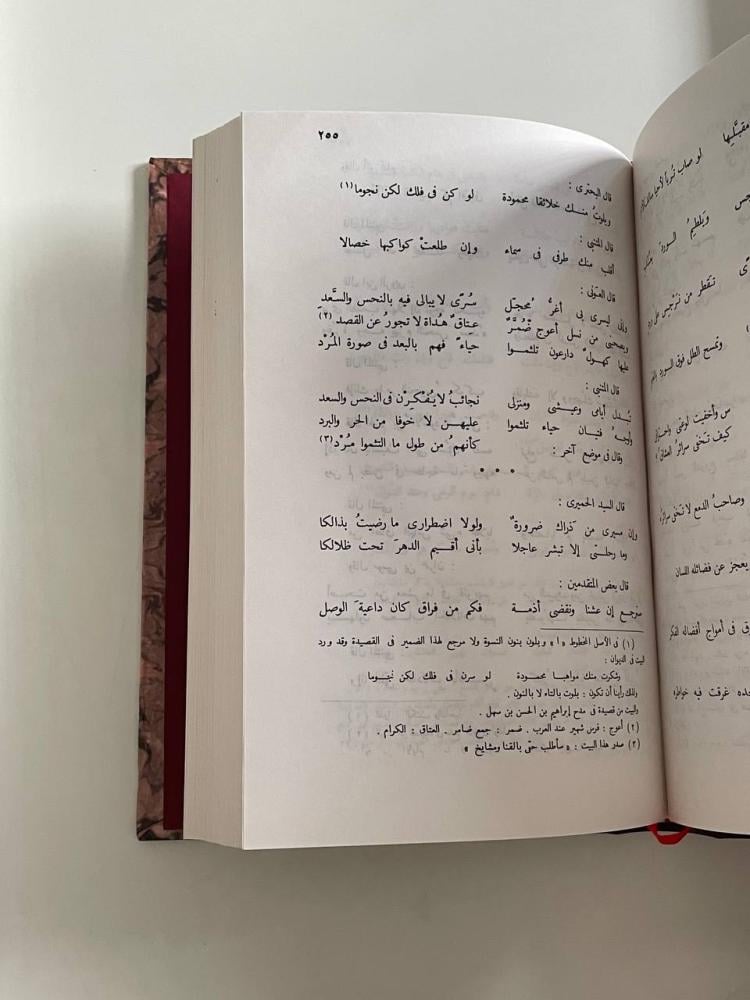 ٢٥٥
قال البحترى :
وبلوتُ منك خلائقا محمودة لو كن فى فلك لكن نجوما (١)
قال المتنبى :
أقلب منك طرفى فى سماء وإن طلعتْ كواكبها خصالا
قال العونى :
وإنى ليسرى بى أغرُّ مُحجّل سُرًى لا يبالى فيه بالنحس والسَّعد
ويصحبنى من نسل أعوج ضُمَّرٌ عتاقٌ هُداة لا تجورُ عن القصد (٢)
عليها كهولٌ دارعون تلثموا حياءً فهم بالبعد فى صورة المُرْد
قال المتنبى :
تُبدل أيامى وعيشى ومنزلى نجائبُ لا يُفْكِرْن فى النحس والسعد
وأوجهُ فتيان حياء تلثموا عليهن لا خوفا من الحر والبرد
وقال فى موضع آخر : كأنهمُ من طول ما التثموا مُرْد (٣)
• • •
قال السيد الحميرى :
وإن مسيرى من ذراك ضرورةٌ ولولا اضطرارى ما رضيتُ بذالكا
وما رحلتى إلا تبشر عاجلا بأنى أقيم الدهرَ تحت ظلالكا
قال بعض المتقدمين :
سنرجع إن عشنا ونقضى أذمة فكم من فراق كان داعيةَ الوصل
(١) فى الأصل المخطوط « ا » وبلون بنون النسوة ولا مرجع لهذا الضمير فى القصيدة وقد ورد
البيت فى الديوان :
وشكرت منك مواهبا محمودة لو سرن فى فلك لكن نجوما
ولذلك رأينا أن تكون : بلوت بالتاء لا بالنون .
والبيت من قصيدة فى مدح إبراهيم بن الحسن بن سهل .
(٢) أعوج : فرس شهير عند العرب . ضمر : جمع ضامر . العتاق : الكرام .
(٣) صدر هذا البيت : « سأطلب حتى بالقنا ومشايخ »
مقبَّلِها
وتمسح الطل فوق الورد
وصاحبُ الدمع لا تخفى سرائره
يعجز عن فضائله اللسان
فى أمواج أفضاله الفكر
غرقت فيه خواطره